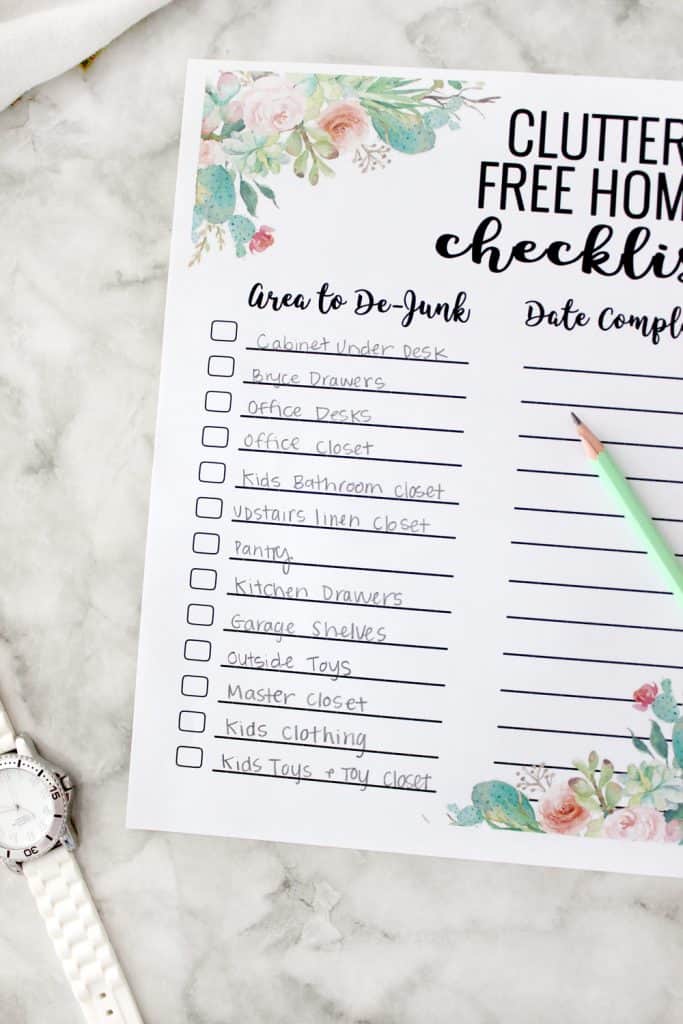 CLUTTER
FREE HOM
checklis
Area to De-Junk
Date Comple
Cabinet Under Desk
Bryce Drawers
Office Desks
Office Closet
Kids Bathroom Closet
Upstairs linen Closet
Pantry
Kitchen Drawers
Garage Shelves
Outside Toys
Master Closet
Kids Clothing
Kids Toys + Toy Closet
15
30